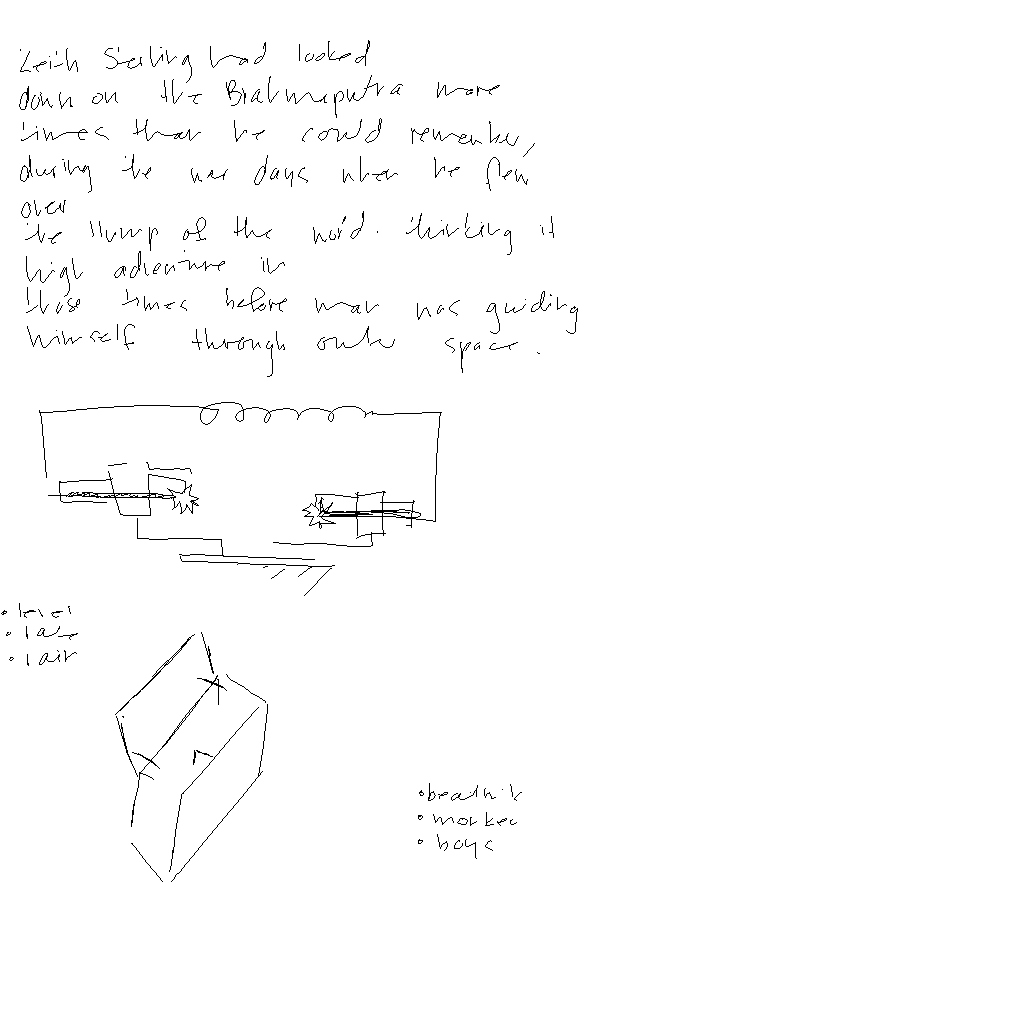 Keith Sterling had looked
down on the Brahmaputra more
times than he could remember,
during the war days when he flew
over
the Hump of the world. thinking it
high adventure in
those times before man was guiding
himself through outer space.
• level
• late
• lair
• beatnik
• worked
• boys